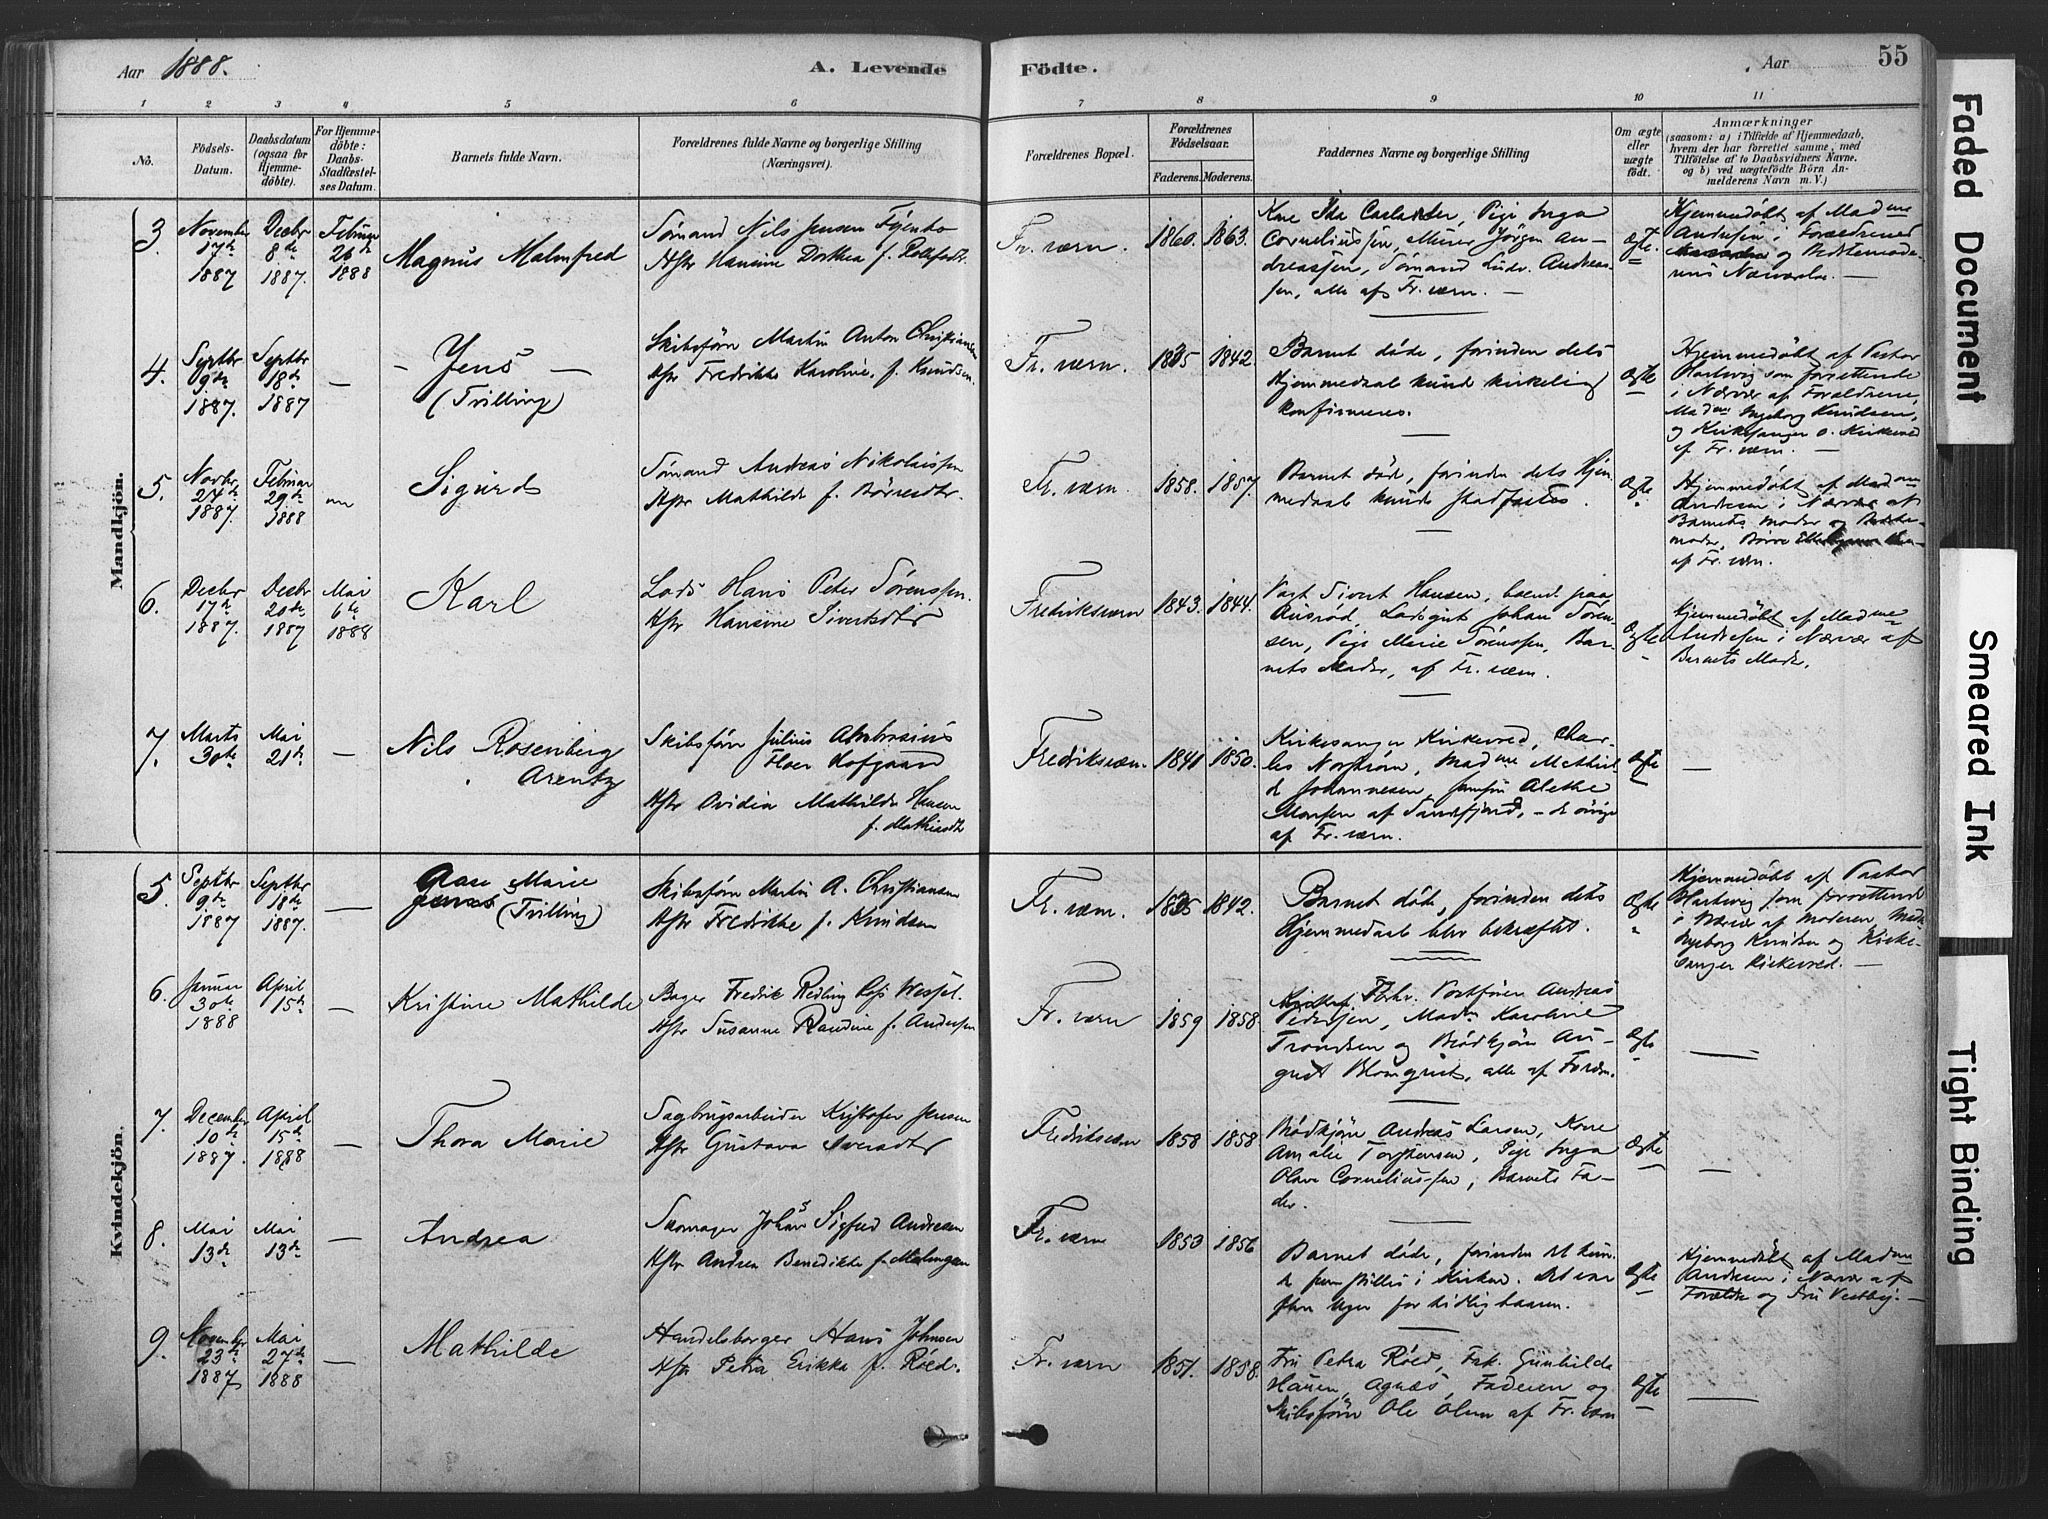 Aar 1888.
A. Levende Födte.
Aar
55
1 2 3 4 5 6 7 8 9 10 11
No.
Födsels-
Datum.
Daabsdatum
(ogsaa for
Hjemme-
döbte).
For Hjemme-
döbte:
Daabs-
Stadfæstel-
ses Datum.
Barnets fulde Navn.
Forældrenes fulde Navne og borgerlige Stilling
(Næringsvei).
Forældrenes Bopæl.
Forældrenes
Födselsaar.
Faderens. Moderens.
Faddernes Navne og borgerlige Stilling
Om ægte
eller
uægte
födt.
Anmærkninger
(saasom: a) i Tilfælde af Hjemmedaab,
hvem der har forrettet samme, med
Tilföielse af to Daabsvidners Navne.
og b) ved uægtefödte Börn An-
melderens Navn m. V.)
Mandkjön.
3.
November
17de
1887
Decbr
8de
1887.
Februar
26de
1888
Magnus Malmfred
Sømand Nils Jensen
Hstr Hansine Dorthea f.
Fr.værn.
1860. 1863.
Kone Ida Pige Inga
Corneliussen, Murer Jörgen An-
dreassen, Sømand Ludv. Andreas-
sen, alle af Fr.værn. —
Ægte.
Hjemmedöbt af Madme
Andresen i Forældrenes
og Bedstemode-
rens Nærværelse. —
4.
Septbr
9de
1887.
Septbr
18de
1887
—
— Jens —
(Tvilling)
Skibsförer Martin Anton Christiansen
Hstr Fredrikke Karoline, f. Knudsen.
Fr.værn.
1835 1842.
Barnet døde, forinden dets
Hjemmedaab kunde kirkelig
konfirmeres.
Ægte
Hjemmedöbt af Pastor
Hartvig som forrettende
i Nærvær af Forældrene,
Madme Ingeborg Knudsen,
og Kirkesanger O. Kirkevred
af Fr.værn. —
5.
Novbr.
24de
1887.
Februar
29de
1888
Sigurd
Sømand Andreas Nikolaissen
Hstr Mathilde f. Börresdtr.
Fr.værn.
1858. 1857.
Barnet døde, forinden dets Hjem-
medaab kunde stadfæstes.
Ægte
Hjemmedöbt af Madme
Andresen i Nærvær af
Barnets Moder og Bedste-
moder, Børre
af Fr.værn.
6.
Decbr
17de
1887.
Decbr
20de
1887
Mai
6te
1888
Karl
Lods Hans Peter Sörenssen.
Hstr Hansine Sivertsdtr
Fredriksværn
1843. 1844.
Vagt Sivert Hansen, boende paa
Lodsgut Johan Sören-
sen, Pige Marie Sörenssen, Bar-
nets Moder, af Fr.værn.
Ægte
Hjemmedöbt af Madme
Andresen i Nærvær af
Barnets Moder.
7.
Marts
30te
Mai
21de
—
Nils Rosenberg
Arentz
Skibsförer Julius Ambrosius
Floer Hofgaard
Hstr Ovidia Mathilde Hansen
f. Mathiasdtr
Fredriksværn.
1841 1850.
Kirkesanger Kirkevred, Char-
les Norström, Madme Mathil-
de Johannesen, Jomfru Alethe
af Sandefjord, – de övrige
af Fr.værn.
Ægte
—
Kvindekjön.
5.
Septbr
9de
1887
Septbr
18de
1887.
—
Aase Marie
(Tvilling)
Skibsförer Martin A. Christiansen
Hstr Fredrikke f. Knudsen
Fr.værn.
1835 1842.
Barnet døde, forinden dets
Hjemmedaab blev bekræftet.
Ægte
Hjemmedöbt af Pastor
Hartvig som forrettende
i Nærvær af Moderen, Mad.
Ingeborg Knudsen og Kirke-
sanger Kirkevred. —
6.
Januar
30te
1888
April
15de
—
Kristine Mathilde
Bager Fredrik Wessel.
Hstr Susanne Randine f. Andersen
Fr.værn
1859 1858
Forhv. Postförer Andreas
Pedersen, Madm Karoline
Trondsen og Bödkjörer Au-
gust Blomqvist, alle af Fredv.
Ægte
—
7.
December
10de
1887.
April
15de
1888
—
Thora Marie
Sagbrugsarbeider Kristofer Jensen
Hstr Gustava Iversdtr
Fredriksværn
1858 1858
Bödkjörer Andreas Larsen, Kone
Amalie Torstensen, Pige Inga
Olava Corneliussen, Barnets Fa-
der.
Ægte
—
8.
Mai
13de
Mai
13de
—
Andrea
Skomager Johan Sigfred Andresen
Hstr Andrea Benedikte f.
Fr.værn
1853 1856
Barnet døde, forinden det kun-
de fremstilles i Kirken. Det var
flere Uger for tidlig baaren.
Ægte
Hjemmedöbt af Madme
Andresen i Nærvær af
Forældre og Fru Vestby. —
9.
November
23de
1887
Mai
27de
1888
—
Mathilde
Handelsborger Hans Johnsen
Hstr Petra Erikka f. Röed.
Fr.værn
1851. 1858.
Fru Petra Röed, Frk. Gunhilde
Hansen, Agnes, Faderen og
Skibsförer Ole Olsen af Fr.værn
Ægte
—
Faded Document
Smeared Ink
Tight Binding